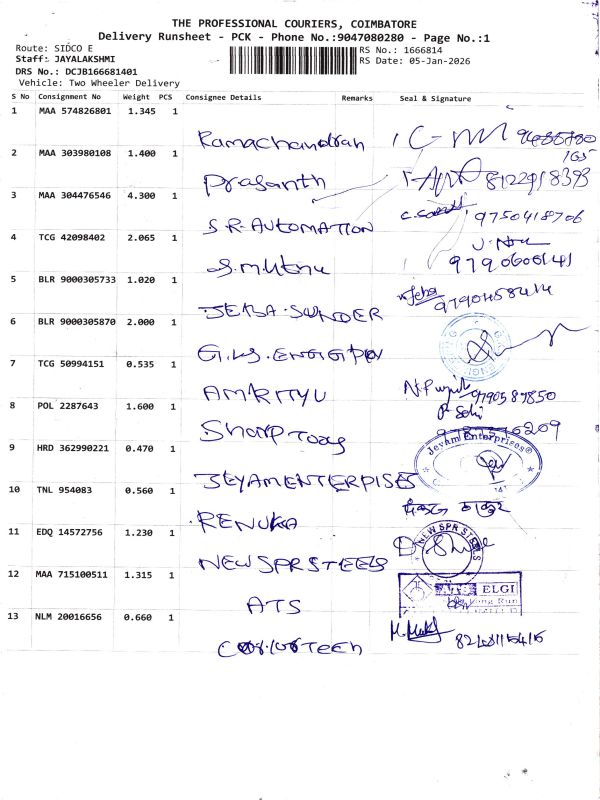 THE PROFESSIONAL COURIERS, COIMBATORE
Delivery Runsheet - PCK - Phone No.:9047080280 - Page No.:1
Route: SIDCO E
RS No.: 1666814
Staff: JAYALAKSHMI
RS Date: 05-Jan-2026
DRS No.: DCJB166681401
Vehicle: Two Wheeler Delivery
S No Consignment No Weight PCS Consignee Details Remarks Seal & Signature
1 MAA 574826801 1.345 1
Ramachandran
2 MAA 303980108 1.400 1
Prasanth 8122918393
3 MAA 304476546 4.300 1
S.R. AUTOMATION 9750418706
4 TCG 42098402 2.065 1
5 BLR 9000305733 1.020 1
JEBA.SUNDER
6 BLR 9000305870 2.000 1
7 TCG 50994151 0.535 1
AMRITYU
8 POL 2287643 1.600 1
9 HRD 362990221 0.470 1
Jeyam Enterprises®
JEYAM ENTERPISES
10 TNL 954083 0.560 1
RENUKA
11 EDQ 14572756 1.230 1
NEW SPR STEELS
NEW SPR STEELS
12 MAA 715100511 1.315 1
ELGI
ATS
13 NLM 20016656 0.660 1